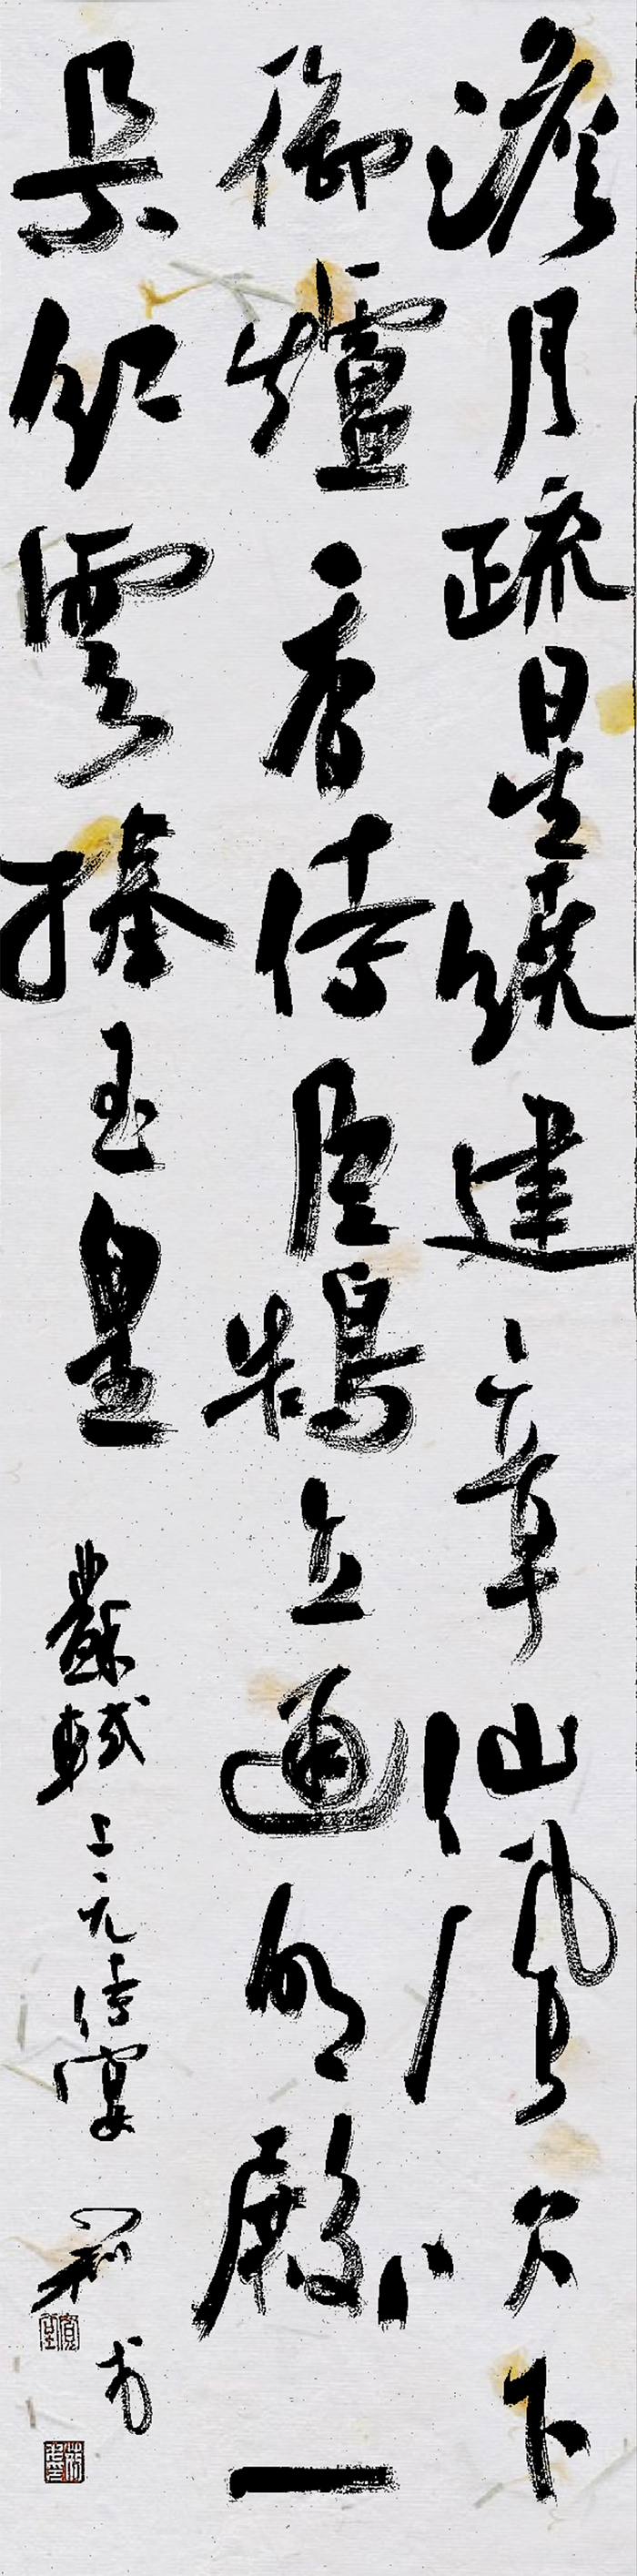 澹月疏星繞建章仙風吹下
御爐香侍臣鵠立通明殿一
朵紅雲捧玉皇
蘇軾上元侍宴